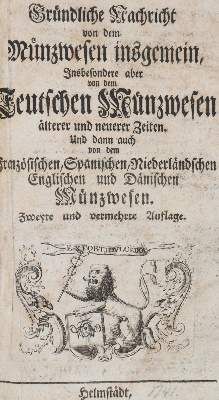 Gründliche Nachricht
von dem
Münzwesen insgemein,
Insbesondere aber
von dem
Teutschen Münzwesen
älterer und neuerer Zeiten.
Und dann auch
von dem
Französischen, Spanischen, Niederländschen
Englischen und Dänischen
Münzwesen.
Zweyte und vermehrte Auflage.
Helmstädt,